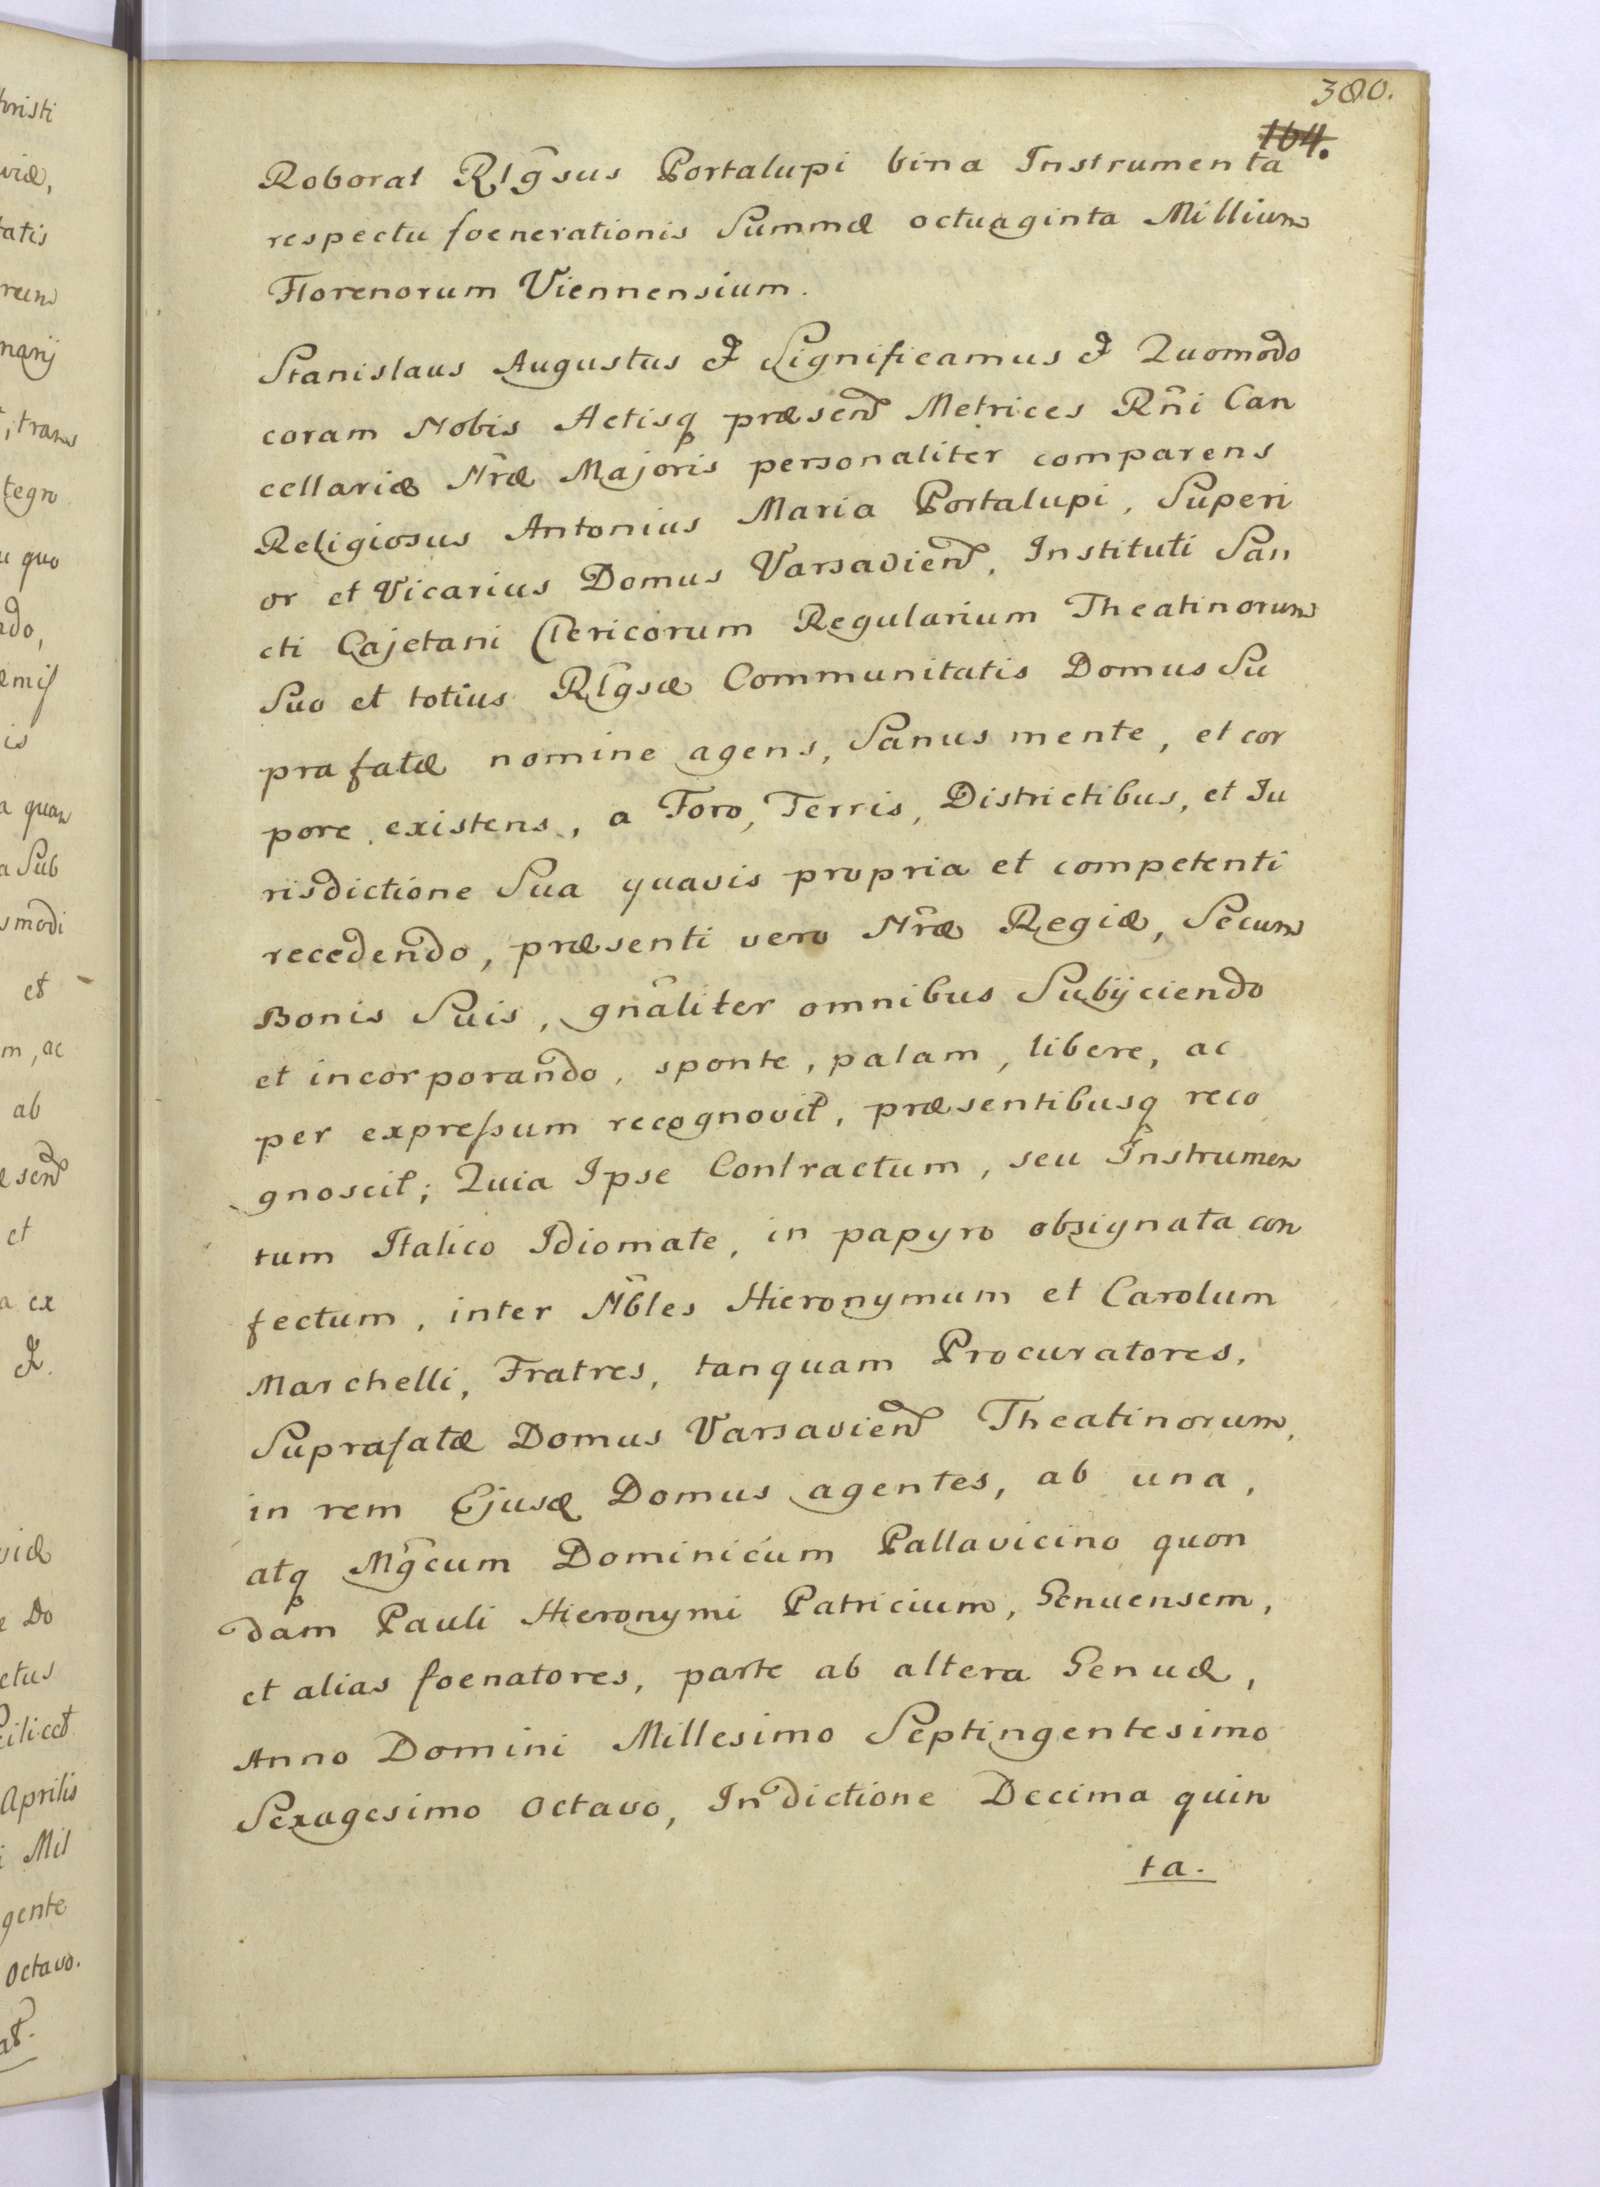 380.
164.
Roborat Rlg̃sus Portalupi bina Instrumenta
respectu foenerationis Summæ octuaginta Millium
Florenorum Viennensium.
Stanislaus Augustus & Significamus & Quomodo
coram Nobis Actisq præsen Metrices Rñi Can
cellariæ Nræ Majoris personaliter comparens
Religiosus Antonius Maria Portalupi, Superi
or et Vicarius Domus Varsavien, Instituti San
cti Cajetani Clericorum Regularium Theatinorum
Suo et totius Rlg̃sæ Communitatis Domus Su
prafatæ nomine agens, Sanus mente, et cor
pore existens, a Foro, Terris, Districtibus, et Ju
risdictione Sua quavis propria et competenti
recedendo, præsenti vero Nræ Regiæ, Secum
Bonis Suis, gñaliter omnibus Subijciendo
et incorporando, sponte, palam, libere, ac
per expressum recognovit, præsentibusq reco
gnoscit; Quia Ipse Contractum, seu Instrumen
tum Italico Idiomate, in papyro obsignata con
fectum, inter Nb̃les Hieronymum et Carolum
Marchelli, Fratres, tanquam Procuratores,
Suprafatæ Domus Varsavien Theatinorum,
in rem Ejusd Domus agentes, ab una,
atq Mg̃cum Dominicum Pallavicino quon
dam Pauli Hieronymi Patricium, Genuensem,
et alias foenatores, parte ab altera Genuæ,
Anno Domini Millesimo Septingentesimo
Sexagesimo octavo, Indictione Decima quin
ta.